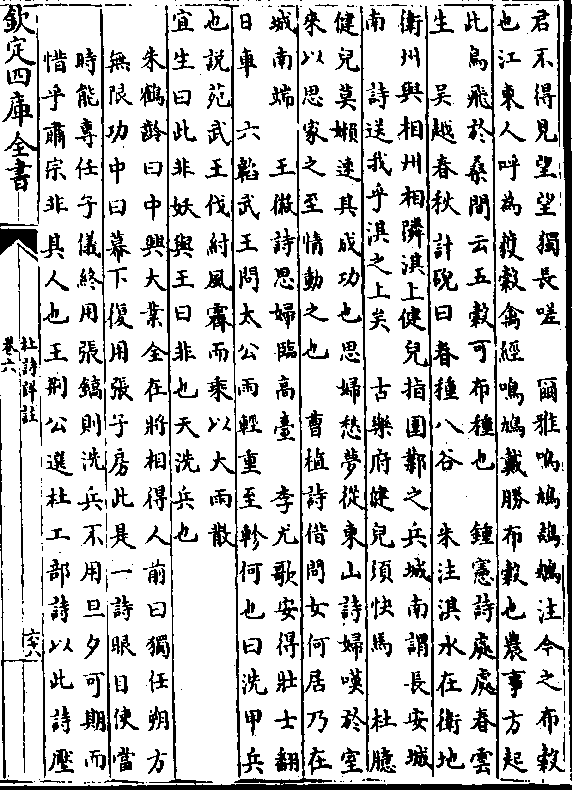 君不得見望望獨長嗟　爾雅鳲鳩鴶鵴注今之布穀
也江東人呼為穫穀禽經鳴鳩戴勝布穀也農事方起
此鳥飛於桑間云五穀可布種也　鍾憲詩處處春雲
生　吳越春秋計硯曰春種八谷　朱注淇水在衛地
衛州與相州相隣淇上健兒指圍鄴之兵城南謂長安城
南　詩送我乎淇之上矣　古樂府健兒須快馬　杜臆
健兒莫嬾速其成功也思婦愁夢從東山詩婦嘆於室
來以思家之至情動之也　曹植詩借問女何居乃在
城南端　王微詩思婦臨高臺　李尤歌安得壯士翻
日車　六韜武王問太公雨輕重至軫何也曰洗甲兵
也說苑武王伐紂風霽而乘以大雨散
宜生曰此非妖與王曰非也天洗兵也
朱鶴齡曰中興大業全在將相得人前曰獨任朔方
無限功中曰幕下復用張子房此是一詩眼目使當
時能專任子儀終用張鎬則洗兵不用旦夕可期而
惜乎肅宗非其人也王荆公選杜工部詩以此詩壓
欽定四庫全書
杜詩詳註
卷六
六十八